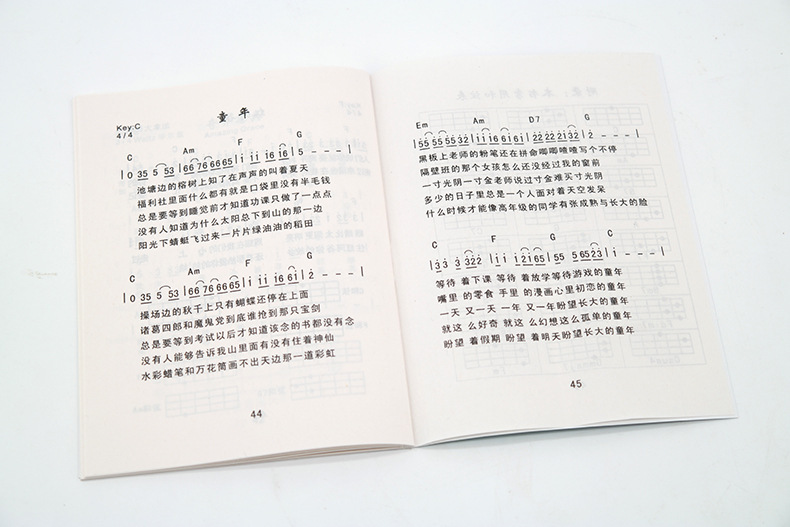 童年
Key:C
4/4
C Am F G
0 35 5 53 | 66 76 66 65 | i i i i6 i6 | 5 - - - |
池塘边的榕树上知了在声声的叫着夏天
福利社里面什么都有就是口袋里没有半毛钱
总是要等到睡觉前才知道功课只做了一点点
没有人知道为什么太阳总下到山的那一边
阳光下蜻蜓飞过来一片片绿油油的稻田
C Am F G
0 35 5 53 | 66 76 66 65 | i i i i6 6i | 2 - - - |
操场边的秋千上只有蝴蝶还停在上面
诸葛四郎和魔鬼党到底谁抢到那只宝剑
总是要等到考试以后才知道该念的书都没有念
没有人能够告诉我山里面有没有住着神仙
水彩蜡笔和万花筒画不出天边那一道彩虹
44
Em Am D7 G
黑板上老师的粉笔还在拼命唧唧喳喳写个不停
隔壁班的那个女孩怎么还没经过我的窗前
一寸光阴一寸金老师说过寸金难买寸光阴
多少的日子里总是一个人面对着天空发呆
什么时候才能像高年级的同学有张成熟与长大的脸
C F G C
等待 着下课 等待 着放学等待游戏的童年
嘴里 的零食 手里 的漫画心里初恋的童年
一天 又一天 一年 又一年盼望长大的童年
就这 么好奇 就这 么幻想这么孤单的童年
盼望 着假期 盼望 着明天盼望长大的童年
45